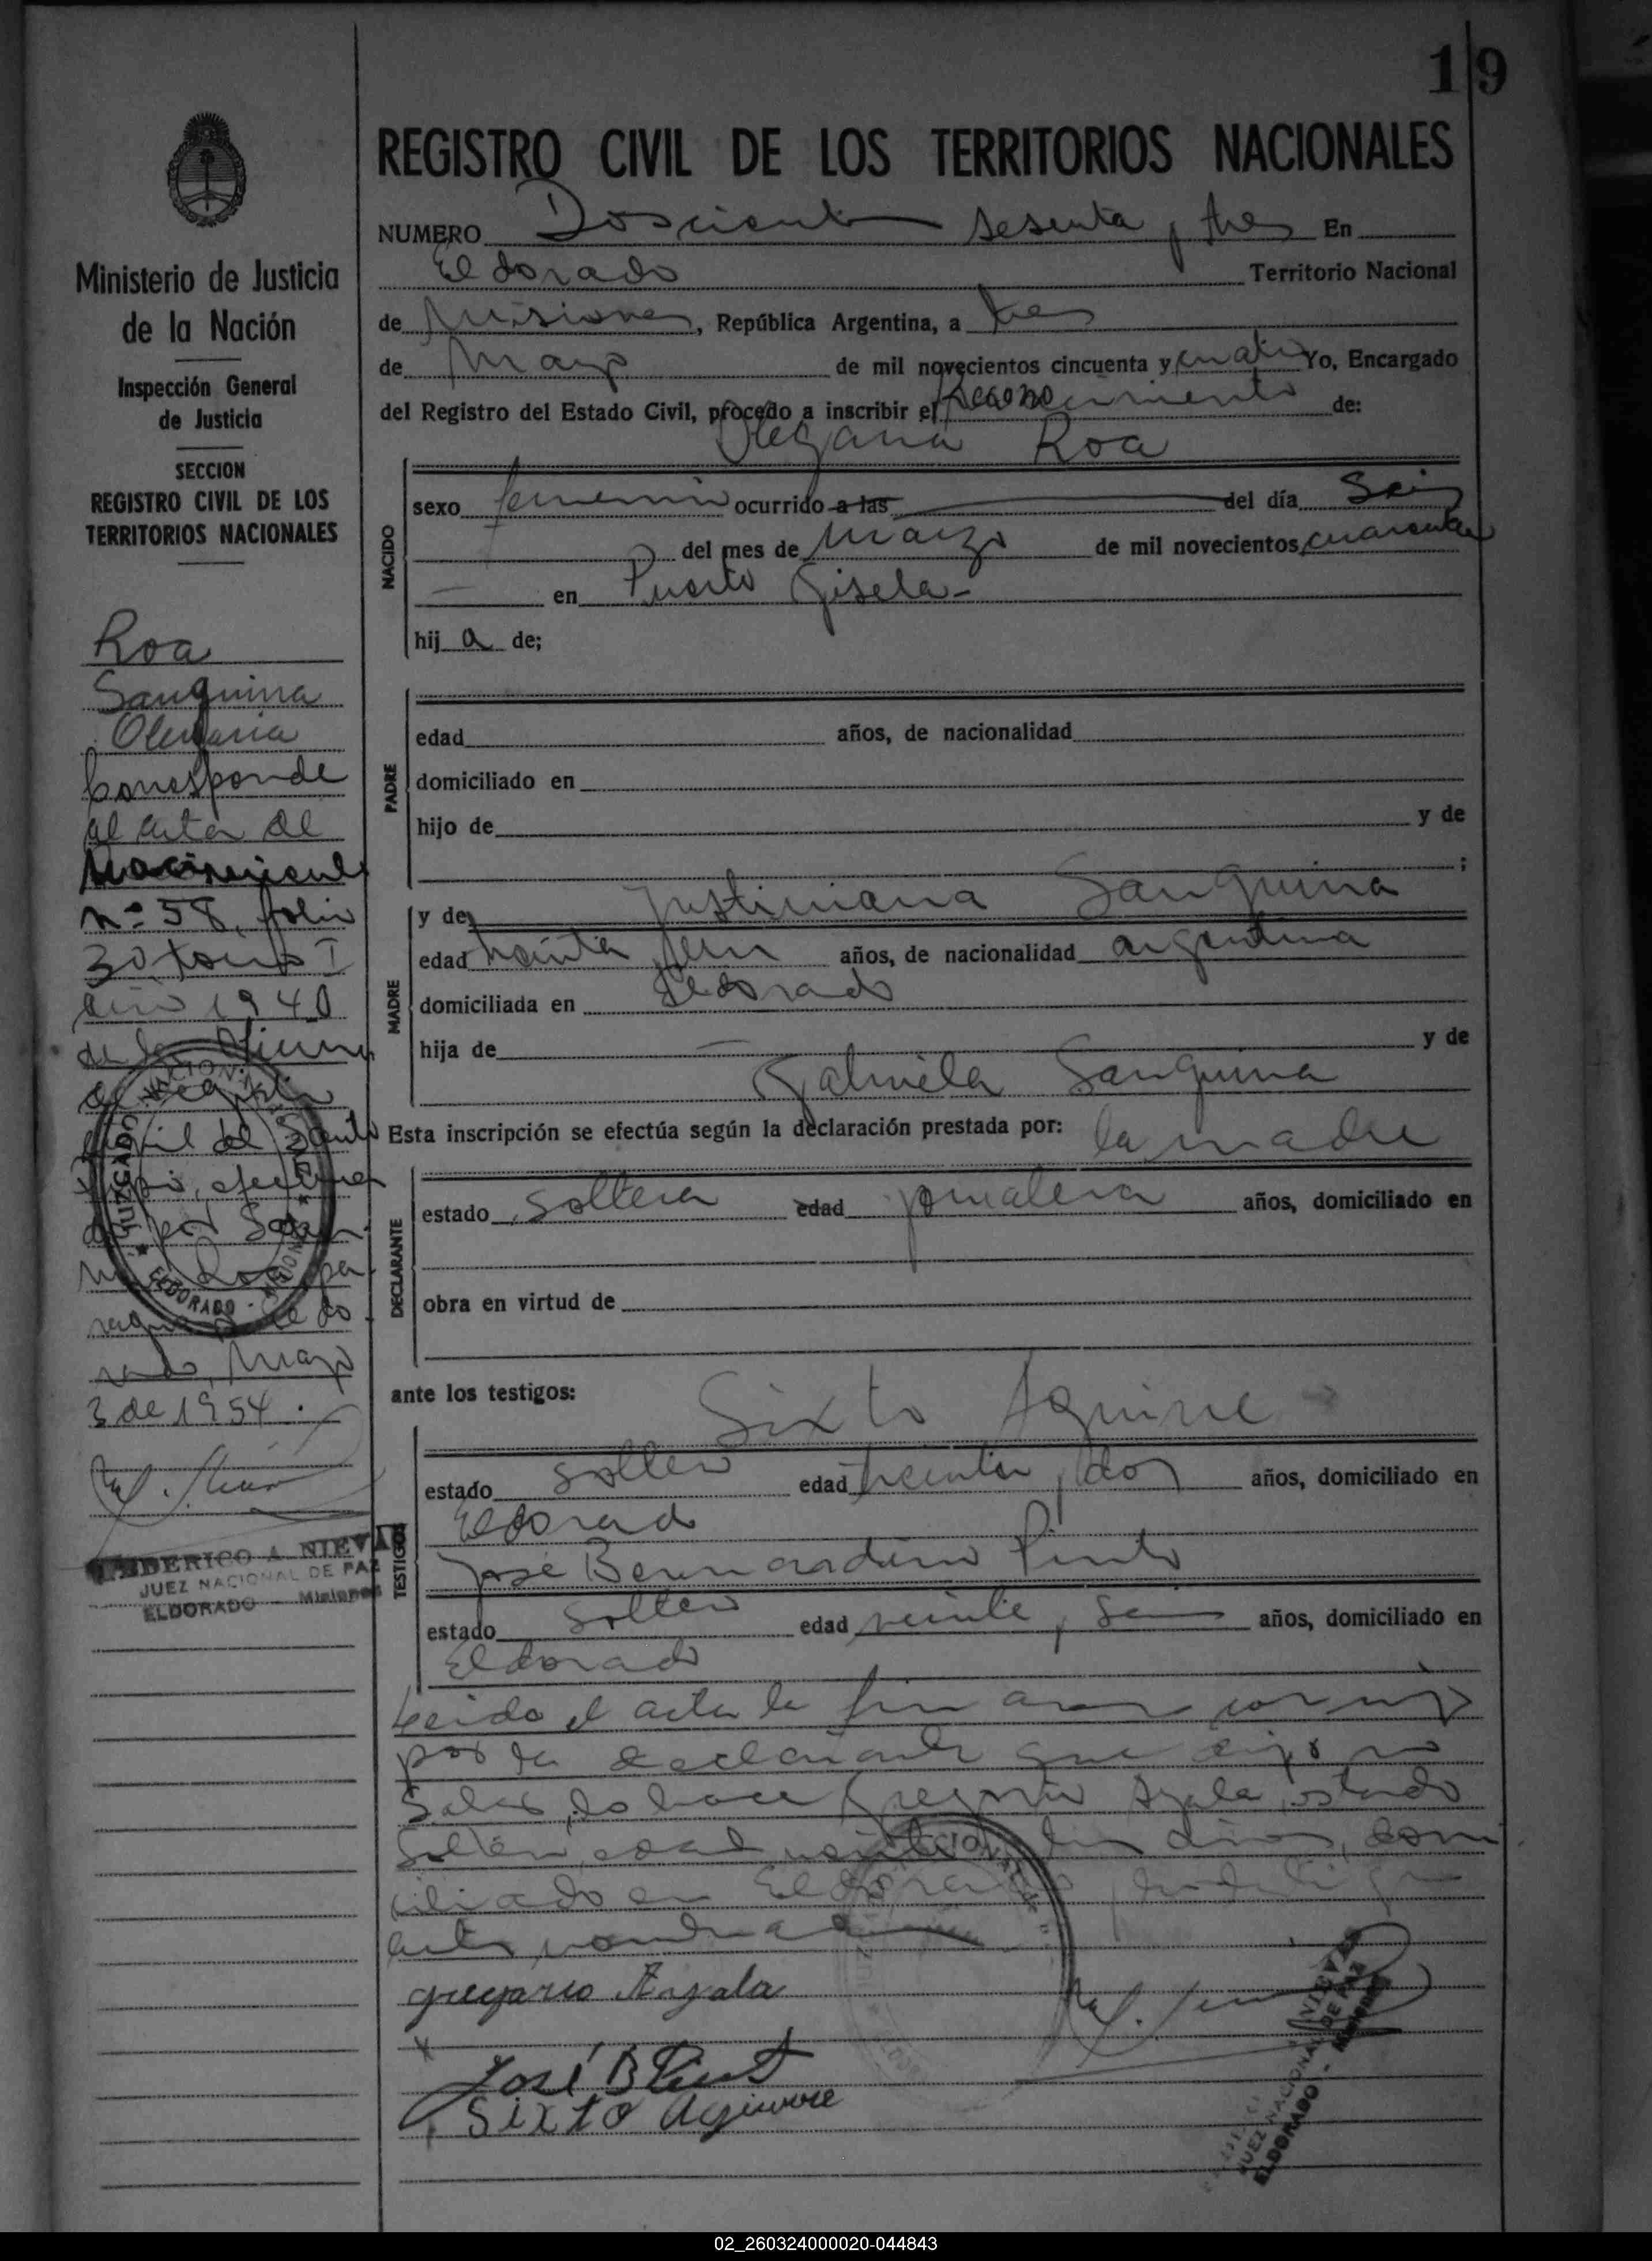 19
REGISTRO CIVIL DE LOS TERRITORIOS NACIONALES
NUMERO Doscientos sesenta y tres En
Eldorado Territorio Nacional
de Misiones, República Argentina, a tres
de Mayo de mil novecientos cincuenta y cuatro Yo, Encargado
del Registro del Estado Civil, procedo a inscribir el reconocimiento de:
Olegaria Roa
NACIDO
sexo femenino ocurrido a las del día Seis
del mes de Marzo de mil novecientos cuarenta
en Puerto Gisela-
hij a de;
PADRE
edad años, de nacionalidad
domiciliado en
hijo de y de
;
MADRE
y de Justiniana Sanquina
edad treinta años, de nacionalidad argentina
domiciliada en Eldorado
hija de y de
Gabriela Sanquina
Esta inscripción se efectúa según la declaración prestada por: la madre
DECLARANTE
estado soltera edad jornalera años, domiciliado en
obra en virtud de
ante los testigos: Sixto Aguirre
TESTIGOS
estado soltero edad treinta y dos años, domiciliado en
Eldorado
José Bernardino Pinto
estado soltero edad veinte y seis años, domiciliado en
Eldorado
Leido el acta la
por la declarante que dijo no
Saber, lo hace Gregorio Ayala, estado
Soltero, edad años, domi
ciliado en Eldorado
gregario Ayala
José B Pinto
Sixto Agiurre
Ministerio de Justicia
de la Nación
Inspección General
de Justicia
SECCION
REGISTRO CIVIL DE LOS
TERRITORIOS NACIONALES
Roa
Sanquina
Olegaria
Corresponde
al acta de
Nacimiento
nº 58, folio
30 tomo I
año 1940
de la Oficina
de Registro
Civil de Santo
por
Roa
Mayo
3 de 1954.
JUZGADO NACIONAL DE PAZ
ELDORADO - MISIONES
FEDERICO A. NIEVAS
JUEZ NACIONAL DE PAZ
ELDORADO - Misiones
NIEVAS
JUEZ NACIONAL DE PAZ
ELDORADO - Misiones
02_260324000020-044843